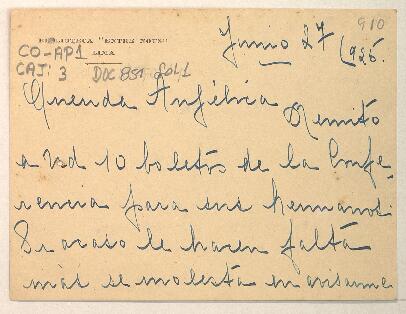 BIBLIOTECA "ENTRE NOUS"
LIMA
910
CO-AP1
CAJ: 3
DOC 851 FOL 1
Junio 27 1926.
Querida Angélica
Remito
a Vsd 10 boletos de la Confe-
rencia para sus hermanos.
Si acaso le hacen falta
más se molesta en avisarme